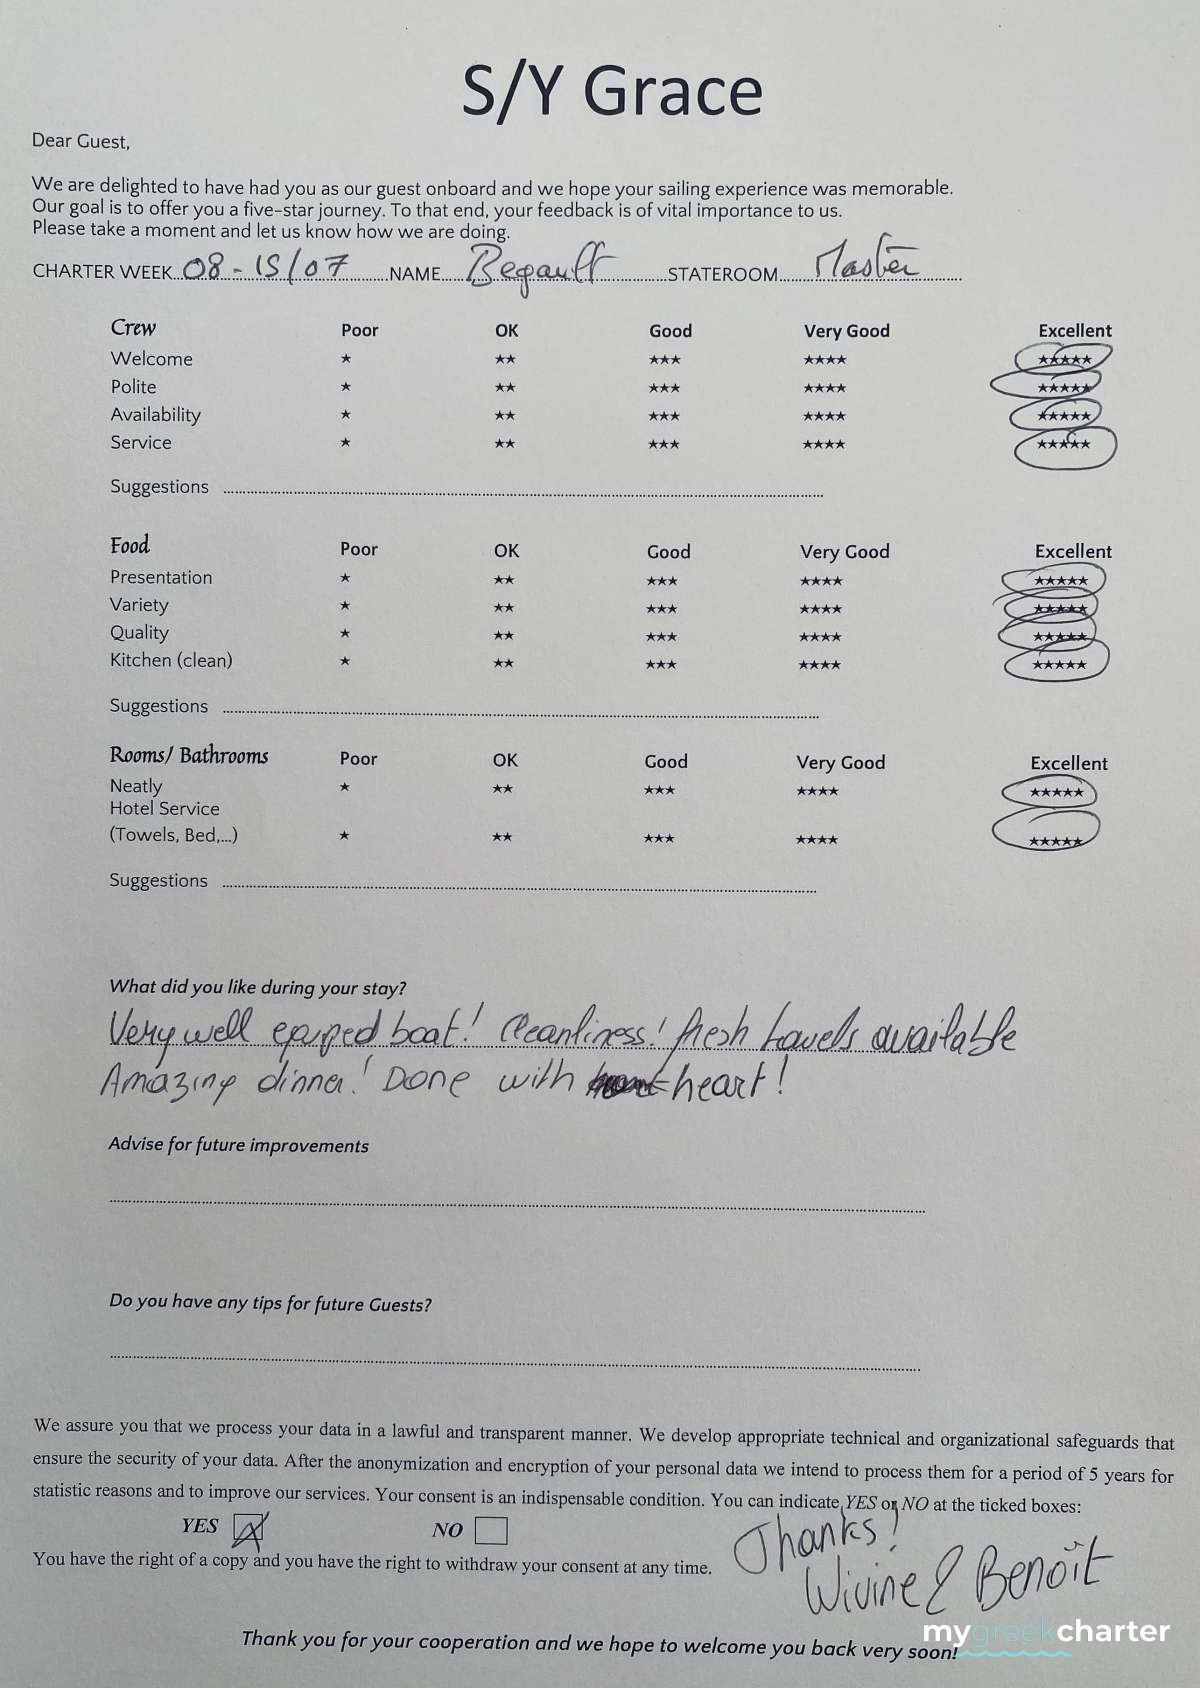 S/Y Grace
Dear Guest,
We are delighted to have had you as our guest onboard and we hope your sailing experience was memorable.
Our goal is to offer you a five-star journey. To that end, your feedback is of vital importance to us.
Please take a moment and let us know how we are doing.
CHARTER WEEK 08 - 15/07 NAME Begault STATEROOM Master
Crew Poor OK Good Very Good Excellent
Welcome ★ ★★ ★★★ ★★★★ ★★★★★
Polite ★ ★★ ★★★ ★★★★ ★★★★★
Availability ★ ★★ ★★★ ★★★★ ★★★★★
Service ★ ★★ ★★★ ★★★★ ★★★★★
Suggestions
Food Poor OK Good Very Good Excellent
Presentation ★ ★★ ★★★ ★★★★ ★★★★★
Variety ★ ★★ ★★★ ★★★★ ★★★★★
Quality ★ ★★ ★★★ ★★★★ ★★★★★
Kitchen (clean) ★ ★★ ★★★ ★★★★ ★★★★★
Suggestions
Rooms/ Bathrooms Poor OK Good Very Good Excellent
Neatly ★ ★★ ★★★ ★★★★ ★★★★★
Hotel Service
(Towels, Bed,...) ★ ★★ ★★★ ★★★★ ★★★★★
Suggestions
What did you like during your stay?
Very well boat! Cleanliness! fresh towels available
Amazing dinner! Done with heart!
Advise for future improvements
Do you have any tips for future Guests?
We assure you that we process your data in a lawful and transparent manner. We develop appropriate technical and organizational safeguards that
ensure the security of your data. After the anonymization and encryption of your personal data we intend to process them for a period of 5 years for
statistic reasons and to improve our services. Your consent is an indispensable condition. You can indicate YES or NO at the ticked boxes:
YES NO
Thanks!
You have the right of a copy and you have the right to withdraw your consent at any time.
Wivine & Benoît
Thank you for your cooperation and we hope to welcome you back very soon!
mygreekcharter